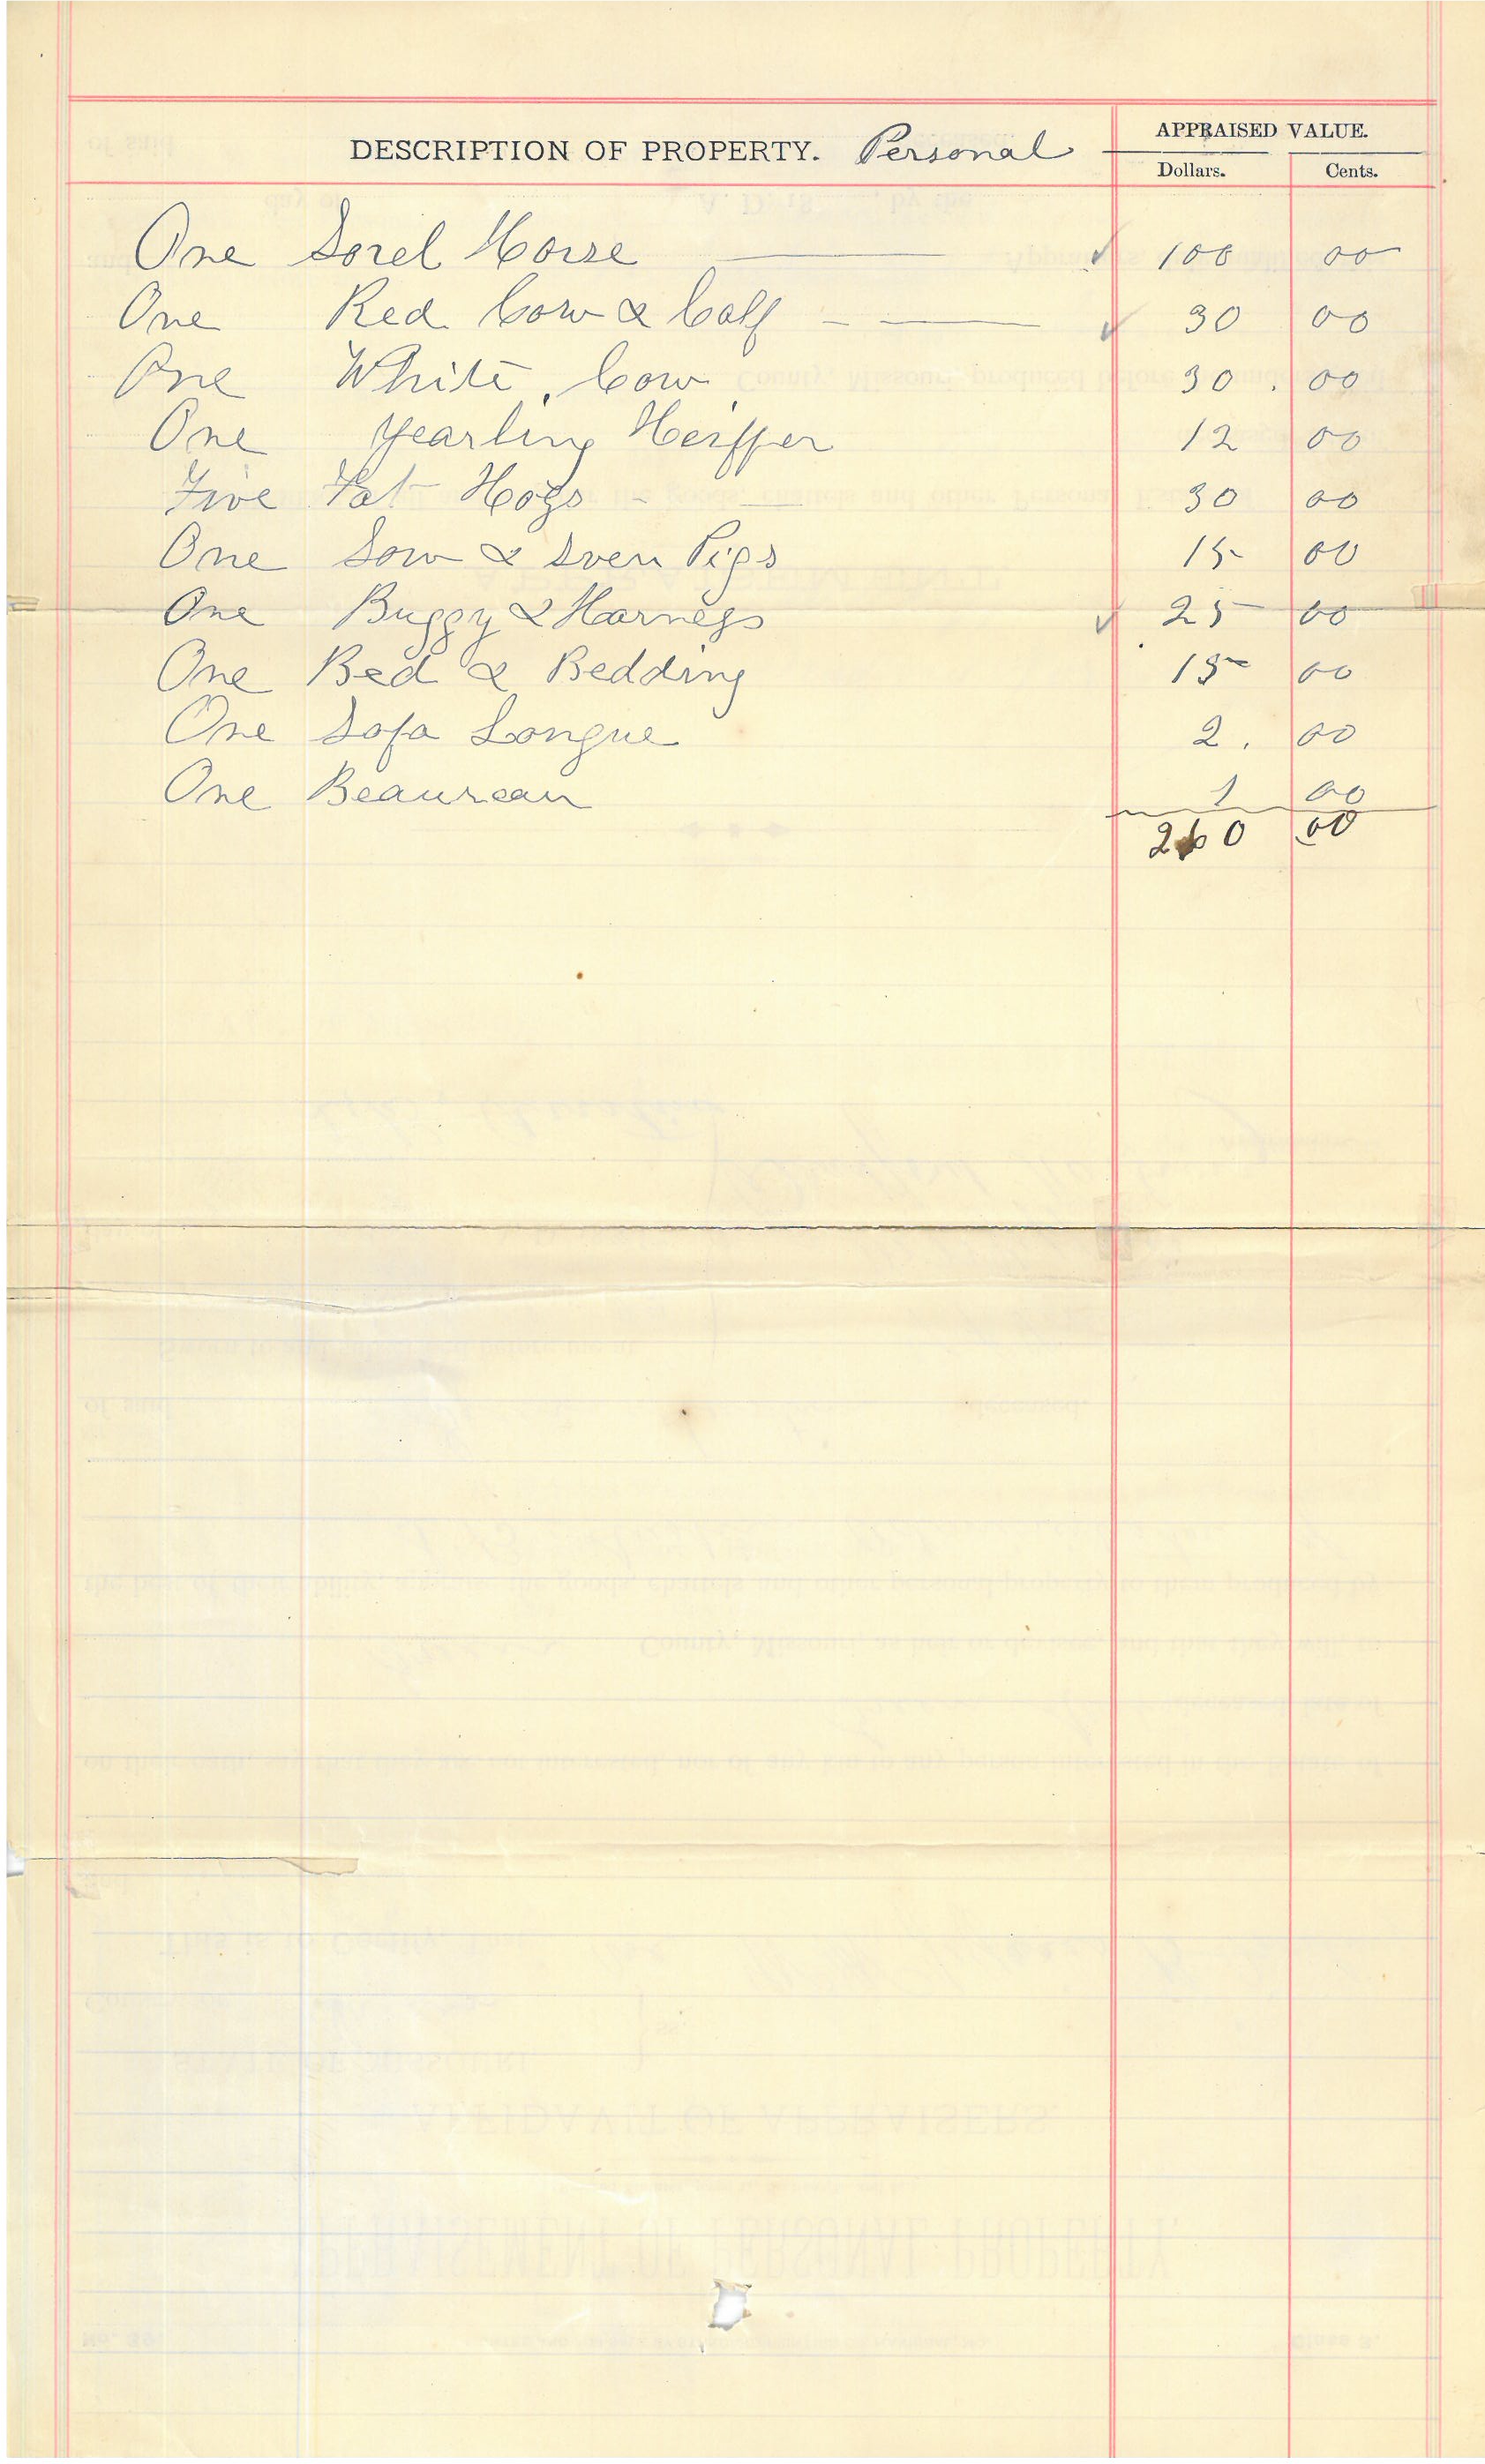 DESCRIPTION OF PROPERTY. Personal
APPRAISED VALUE.
Dollars. Cents.
One Sorel Horse 100 00
One Red Cow & Calf 30 00
One White Cow 30 00
One Yearling Heiffer 12 00
Five Fat Hogs 30 00
One Sow & Sven Pigs 15 00
One Buggy & Harness 25 00
One Bed & Bedding 15 00
One Sofa Longue 2.00
One Beaureau 1 00
260 00